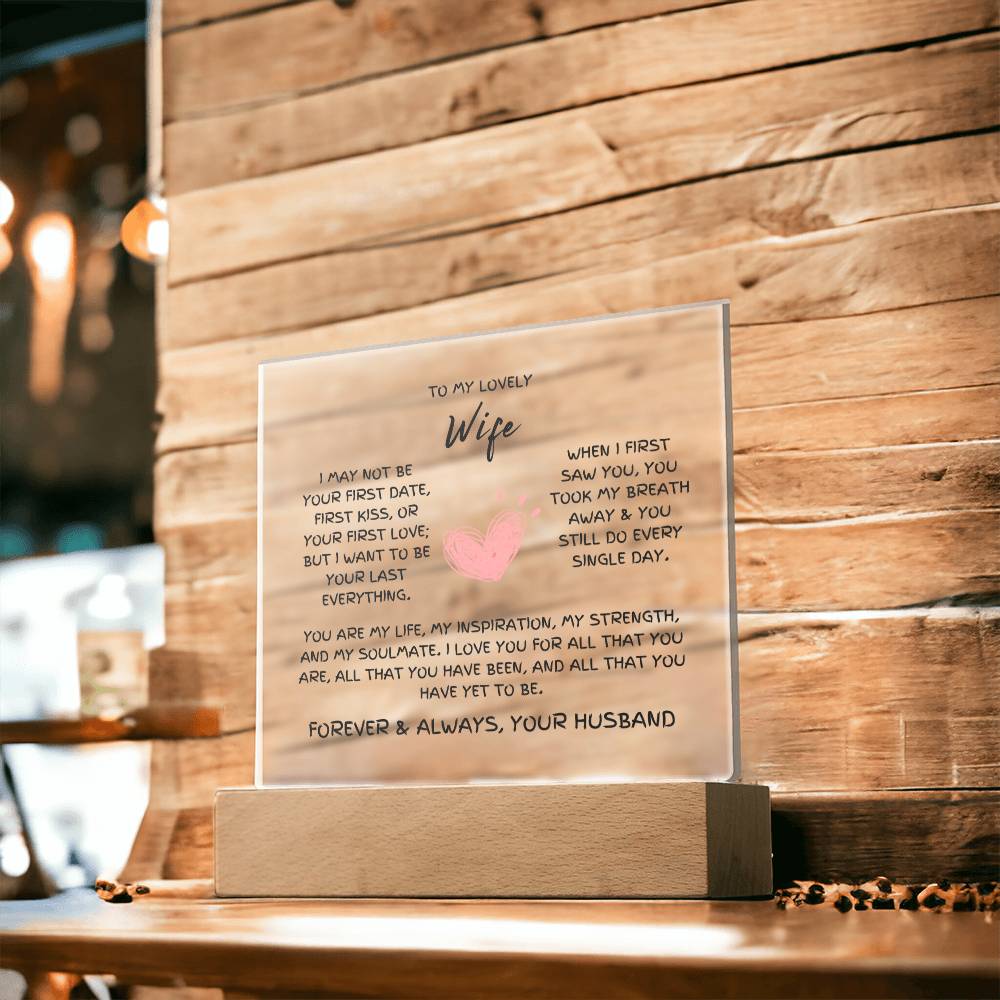 TO MY LOVELY
Wife
I MAY NOT BE
YOUR FIRST DATE,
FIRST KISS, OR
YOUR FIRST LOVE;
BUT I WANT TO BE
YOUR LAST
EVERYTHING.
WHEN I FIRST
SAW YOU, YOU
TOOK MY BREATH
AWAY & YOU
STILL DO EVERY
SINGLE DAY.
YOU ARE MY LIFE, MY INSPIRATION, MY STRENGTH,
AND MY SOULMATE. I LOVE YOU FOR ALL THAT YOU
ARE, ALL THAT YOU HAVE BEEN, AND ALL THAT YOU
HAVE YET TO BE.
FOREVER & ALWAYS, YOUR HUSBAND